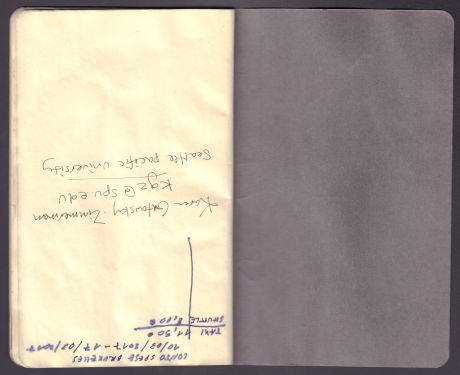 CONTO SPESE BRUXELLES
10/03/2017 - 17/03/2017
TAXI 11,50
SHUTTLE 8,00 €
Karen Gutowsky-Zimmerman
kgz@spu.edu
Seattle pacific university